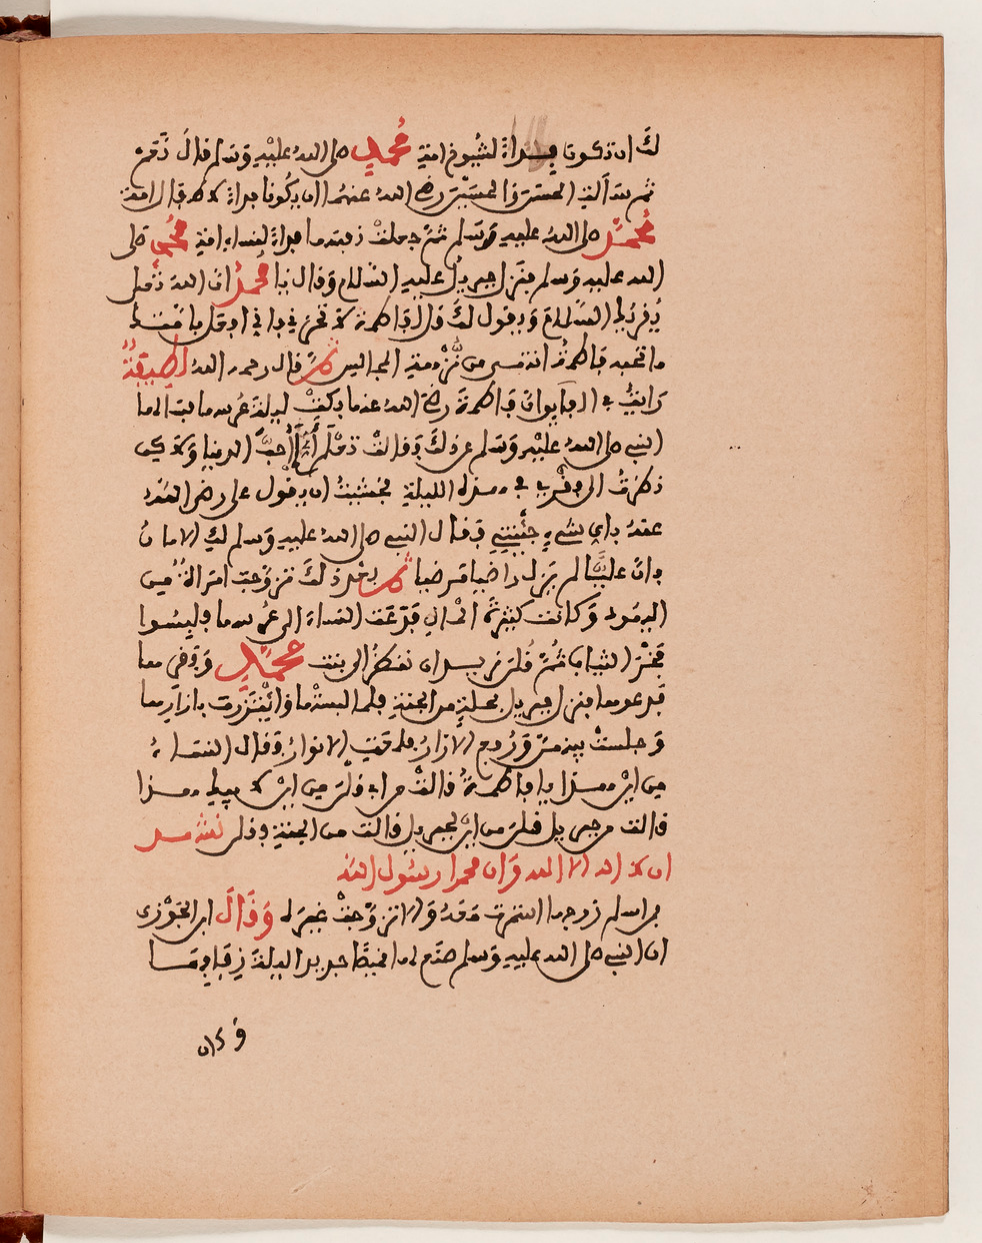 لك ان تكونا براة لشيوخ امة محمد صلى الله عليه وسلم قال نعم
ثم سالت الحسن والحسين رضي الله عنهما ان يكونا براة لاطفال امة
محمد صلى الله عليه وسلم ثم جعلت براة لنساء امة محمد صلى
الله عليه وسلم فنزل جبريل عليه السلام وقال يا محمد ان الله تعلى
يقريك السلام ويقول لك قل لفاطمة لا تحزن
فاطمة انتهى من نزهة المجالس قال رحمه الله لطيفة
رايت في ان فاطمة رضي الله عنها بكت ليلة عرسها فسالها
النبي صلى الله عليه وسلم عن ذلك فقالت تعلم احب الدنيا ولاكن
ذكرت الى فقري في هذه الليلة فخشيت ان يقول علي رضي الله
عنه باي شيء جئتني فقال النبي صلى الله عليه وسلم لك الامان
فان عليا لم يزل راضيا مرضيا ثم بعد ذلك تزوجت امراة من
اليهود وكانت كثيرة المال فدعت النساء الى عرسها فلبسوا
فخر الثياب ثم قلن نريد ان ننظر الى بنت محمد وفقرها
فدعوها فنزل جبريل بحلة من الجنة فلما لبستها واتزرت بازارها
وجلست بينهن ورفع الازار لاحت الانوار فقال النساء
من اين هذا يا فاطمة قالت من ابي فقلن من اين لابيك هذا
قالت من جبريل فقلن من اين لجبريل قالت من الجنة فقلن نشهد
ان لا اله الا الله وان محمدا رسول الله
فمن اسلم زوجها استمرت معه والا تزوجت غيره وقال ابن الجوزي
ان النبي صلى الله عليه وسلم صنع لها قميصا جديدا ليلة زفافها
وكان